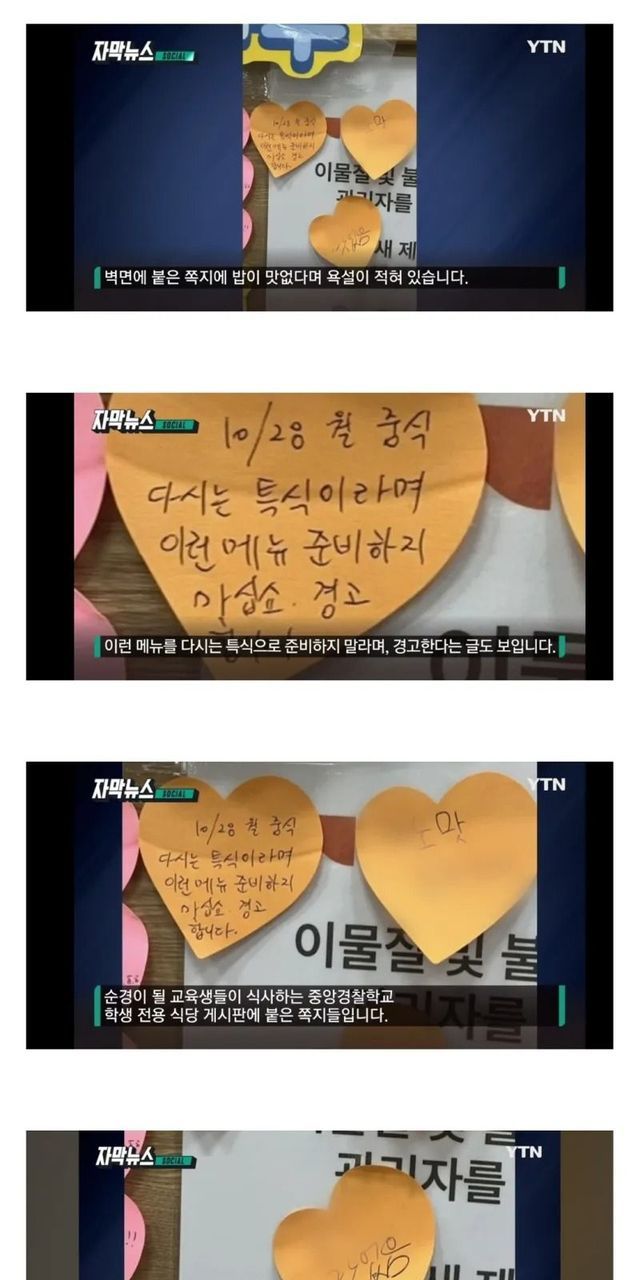 자막뉴스 SOCIAL
YTN
10/28 월 중식
다시는 특식이라며
이런메뉴 준비하지
마십쇼. 경고
합니다.
맛
이물질 및 불
관리자를
새 제
벽면에 붙은 쪽지에 밥이 맛없다며 욕설이 적혀 있습니다.
자막뉴스 SOCIAL
YTN
10/28 월 중식
다시는 특식이라며
이런메뉴 준비하지
마십쇼. 경고
이런 메뉴를 다시는 특식으로 준비하지 말라며, 경고한다는 글도 보입니다.
자막뉴스 SOCIAL
YTN
10/28 월 중식
다시는 특식이라며
이런메뉴 준비하지
마십쇼. 경고
합니다.
노맛
이물질 및 불
순경이 될 교육생들이 식사하는 중앙경찰학교
학생 전용 식당 게시판에 붙은 쪽지들입니다.
자막뉴스 SOCIAL
YTN
관리자를
!!
새 제